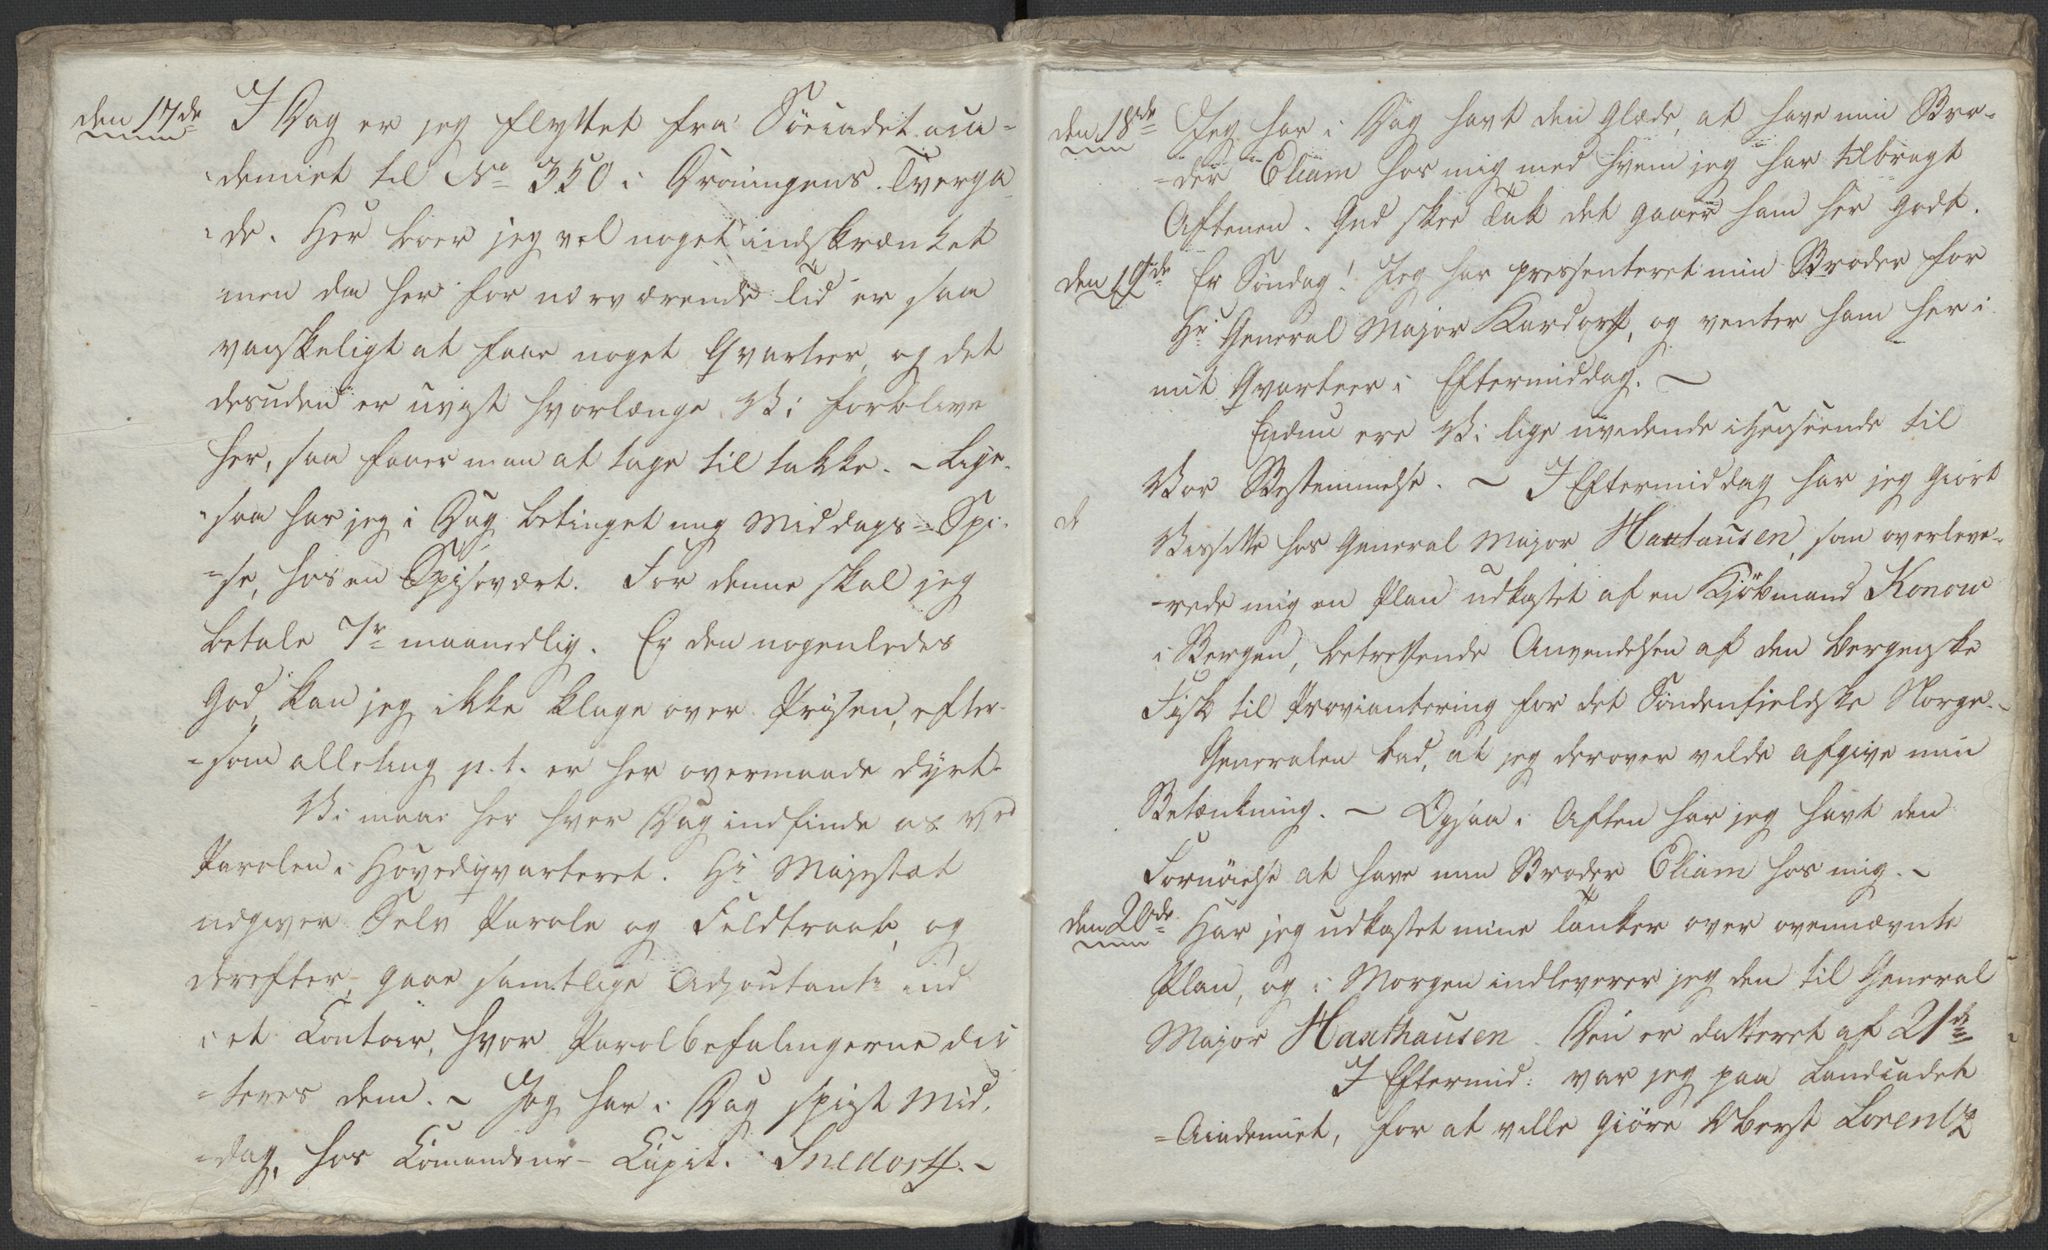 den 17de I Dag er jeg flyttet fra Söecadet aca-
demiet til No 350 i Droningens Tverga
de. Her boer jeg vel noget indskrænket
men da her for nærværende Tid er saa
vanskeligt at faae noget Qvarteer, og det
desuden er uvist hvorlænge Vi forblive
her, saa faaer man at tage til takke. - Lige-
saa har jeg i Dag betinget mig Middags-Spi-
-se, hos en Spisevært. For denne skal jeg
betale 7r maanedlig. Er den nogenledes
God, kan jeg ikke klage over Prisen, efter-
-som alleting p. t. er her overmaade dyrt.
Vi maae her hver Dag indfinde os ved
Parolen i Hovedqvarteret. Hs Majestæt
udgiver Selv Parole og Feldtraab, og
derefter, gaae samtlige Adjoutante ind
i et Contoir, hvor Parolbefalingerne dic
-teres dem. - Jeg har i Dag spist Mid,
-dag, hos Comandeur-Capit. Snedorff. -
den 18de Jeg har i Dag havt den Glæde, at have min Bro-
-der Eliam hos mig med hvem jeg har tilbragt
Aftenen. Gud skee Tak det gaaer ham her Godt.
den 19de Er Söndag! Jeg har pressenteret min Broder for
Hr General Major Kardorff, og venter ham her i
mit Qvarteer i Eftermiddag. -
Endnu ere Vi lige uvidende i Henseende til
Vor Bestemmelse. - I Eftermiddag har jeg Giort
Vissitte hos General Major Haxtausen, som overleve-
-rede mig en Plan udkastet af en Kjöbmand Konow
i Bergen, betreffende Anvendelsen af den bergenske
Fisk til Proviantering for det Söndenfieldske Norge. -
Generalen bad, at jeg derover vilde afgive min
Betænkning. - Ogsaa i Aften har jeg havt den
Fornöielse at have min Broder Eliam hos mig. -
den 20de Har jeg udkastet mine Tanker over ovennævnte
Plan, og i Morgen indleverer jeg den til General
Major Haxthausen. Den er datteret af 21de
I Eftermid: var jeg paa Landcadet
-Academiet, for at ville Giöre Oberst Lorentz